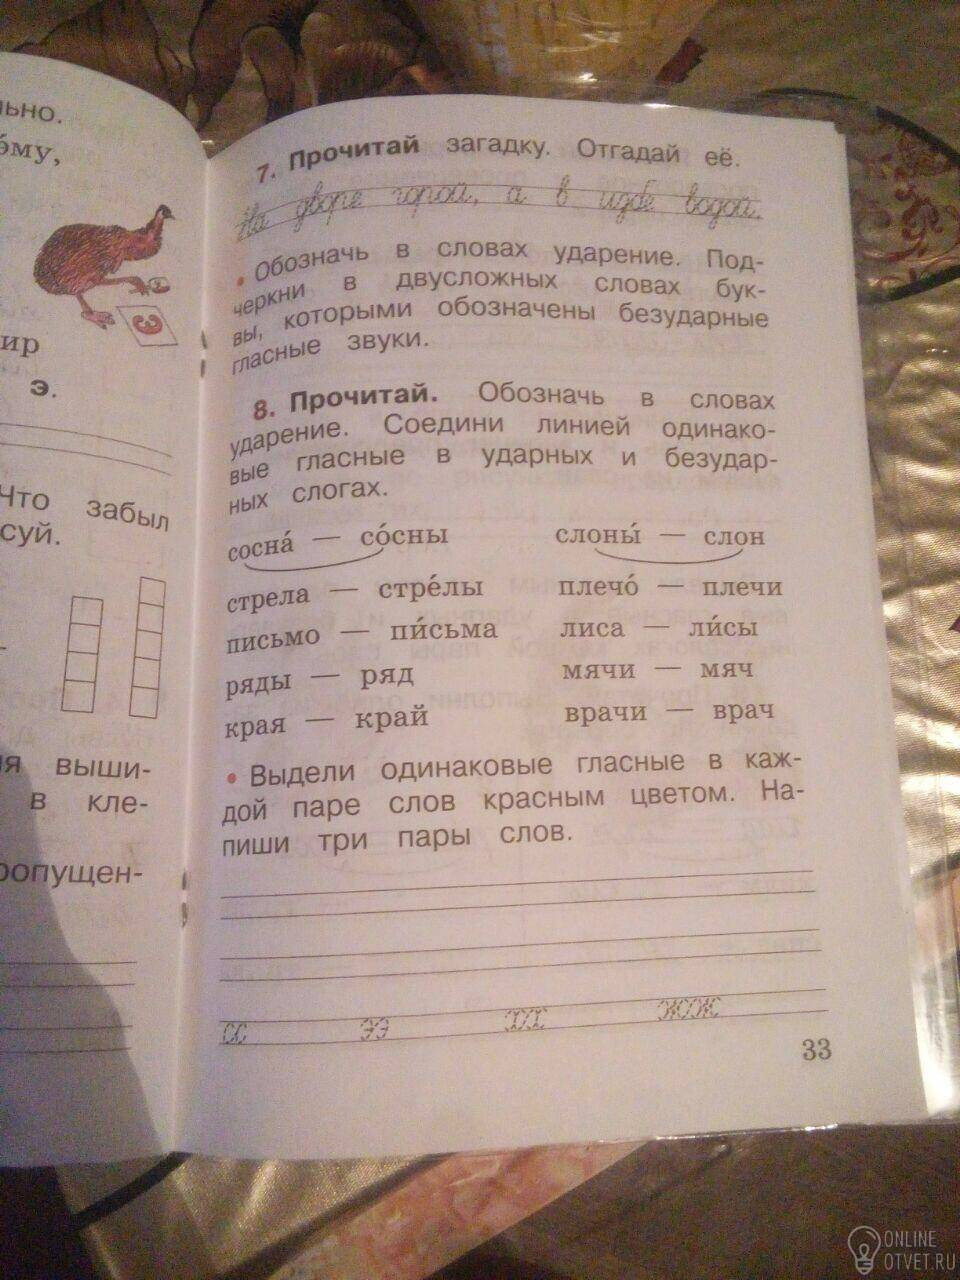 льно.
о́му,
ир
э.
Что забыл
суй.
ия выши-
в кле-
ропущен-
7. Прочитай загадку. Отгадай её.
На дворе горой, а в избе водой.
• Обозначь в словах ударение. Под-
черкни в двусложных словах бук-
вы, которыми обозначены безударные
гласные звуки.
8. Прочитай. Обозначь в словах
ударение. Соедини линией одинако-
вые гласные в ударных и безудар-
ных слогах.
сосна́ — со́сны слоны́ — слон
стрела — стре́лы плечо́ — плечи
письмо — пи́сьма лиса — ли́сы
ряды — ряд мячи — мяч
края — край врачи — врач
• Выдели одинаковые гласные в каж-
дой паре слов красным цветом. На-
пиши три пары слов.
сс ээ хх жж
33
ONLINE
OTVET.RU